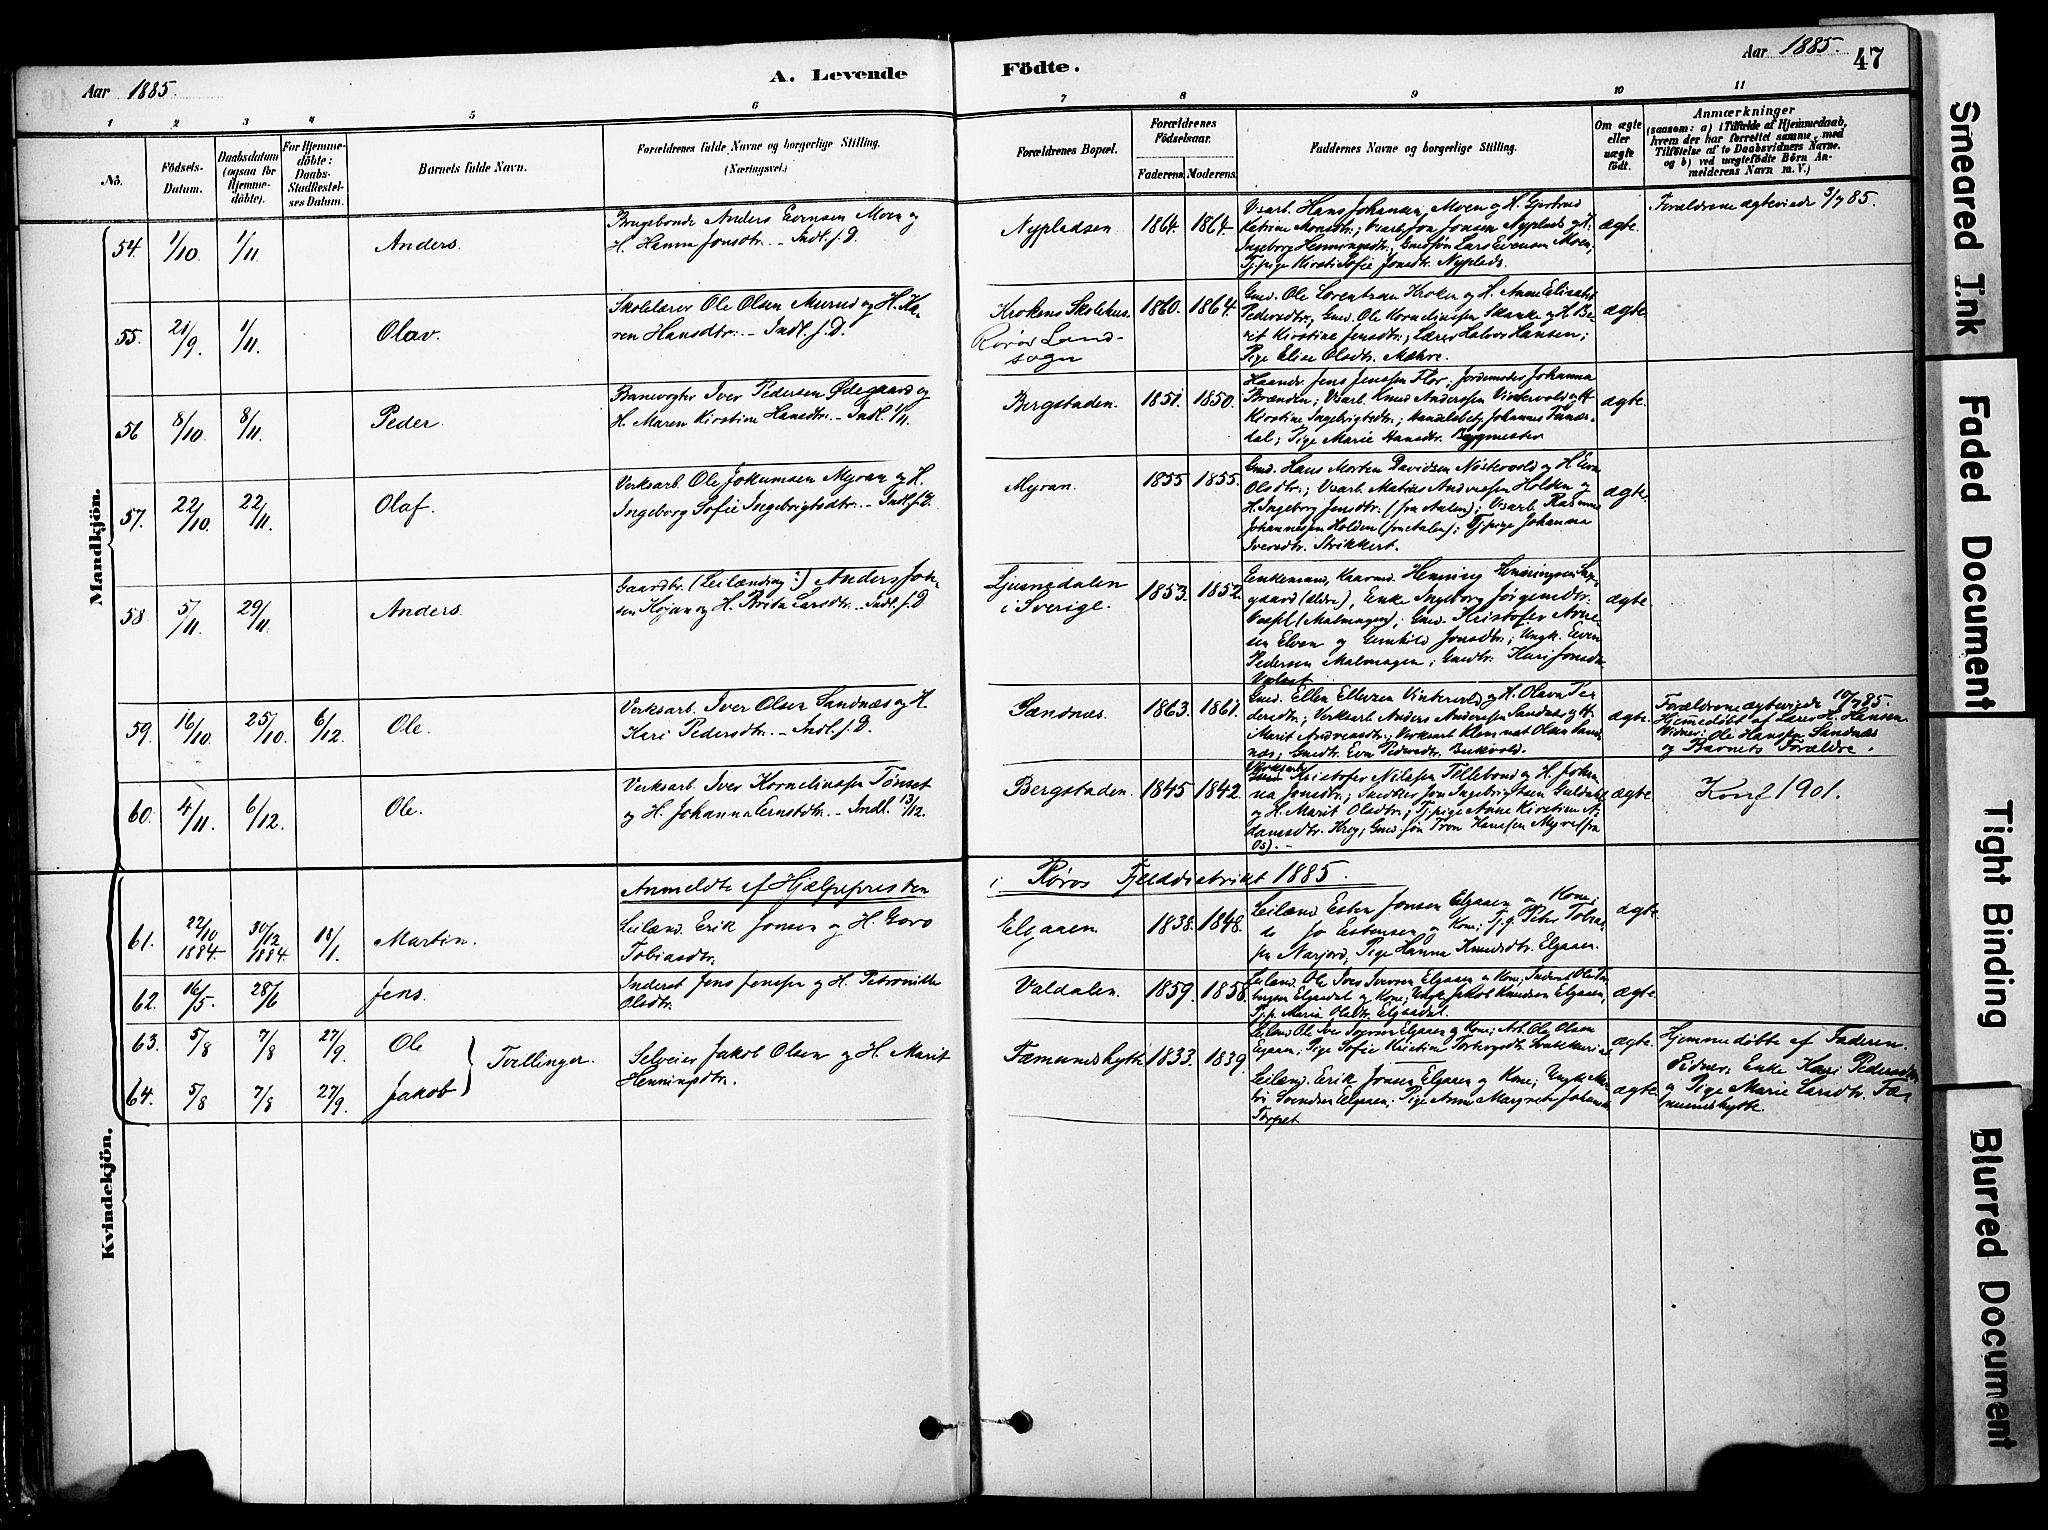 Aar 1885.
A. Levende
Födte.
Aar 1885.
47
1 2 3 4 5 6 7 8 9 10 11
No.
Födsels-Datum.
Daabsdatum (ogsaa for Hjemmedöbte).
For Hjemmedöbte: Daabs-Stadfæstelses Datum.
Barnets fulde Navn.
Forældrenes fulde Navne og borgerlige Stilling.
(Næringsvei.)
Forældrenes Bopæl.
Forældrenes Födselsaar.
Faderens. Moderens.
Faddernes Navne og borgerlige Stilling.
Om ægte eller uægte födt.
Anmærkninger
(saasom: a) i Tilfælde af Hjemmedaab, hvem der har forrettet samme, med Tilföielse af to Daabsvidners Navne, og b) ved uægtefödte Börn Anmelderens Navn m. V.)
Mandkjön.
54. 1/10. 1/11. Anders.
Brugsbonde Anders Evensen Moen og
H. Hanna Jonsdtr. - Indl. s. D.
Nypladsen. 1864. 1864.
V.arb. Hans Johansen Moen og H. Gjertrud
Katrine Monsdtr.; V.arb. Jon Jonsen Nyplads og H.
Ingeborg Henningsdtr.; Gmdsøn Lars Evensen Moen,
Tj.pige Kirsti Sofie Jonsdtr. Nyplads.
ægte.
Forældrene ægteviede 3/7 85.
55. 21/9. 1/11. Olav.
Skolelærer Ole Olsen Murud og H. Ka-
ren Hansdtr. - Indl. s. D.
Krokens Skolehus.
Røros Land-
sogn
1860. 1864.
Gmd. Ole Lorentsen Kroken og H. Anne Elisabet
Pedersdtr.; Gmd. Ole Kornelinssen Skanke og H. Be-
rit Kirstine Jensdtr.; Lærer Halvor Hansen;
Pige Elise Olsdtr. Mæhre.
ægte.
56 8/10. 8/11. Peder.
Banevogter Iver Pedersen Ødegaard og
H. Maren Kirstine Hansdtr. - Indl. 1/11.
Bergstaden. 1851. 1850.
Haandv. Jens Jenssen Flor; Jordemoder Johanna
Brænden; V.arb. Knud Anderssen Vintervold og H.
Kirstine Ingebrigtsdtr.; Handelsbetj. Johannes
dal; Pige Marie Hansdtr. Bygmester
ægte.
57. 22/10. 22/11. Olaf.
Verksarb. Ole Jokumsen Myran og H.
Ingeborg Sofie Ingebrigtsdtr. - Indl. s. D.
Myran. 1855 1855.
Gmd. Hans Morten Davidsen Nostervold og H. Eva
Olsdtr.; V.arb. Matias Anderssen Holden og
H. Ingeborg Jensdtr. (fra Aalen); V.arb. Rasmus
Johannesen Holden (fra Aalen); Tj.pige Johanna
Iversdtr. Strikkert.
ægte.
58. 5/11. 29/11. Anders.
Gaardbr. (Leilænding:) Anders Jon-
sen Kojan og H. Brita Larsdtr. - Indl. s. D.
Ljusnedalen
i Sverige.
1853. 1852.
Enkemand, Kaarmd. Henning Henningsen
gaard (ældre), Enke Ingeborg Jørgensdtr.
(Malmagen); Gmd. Kristofer Arne-
sen Elven og Gunhild Jonsdtr.; Ungk. Even
Pedersen Malmagen; Gmdtr. Kari Jonsdtr.
ægte.
59. 16/10. 25/10. 6/12. Ole.
Verksarb. Iver Olsen Sandnæs og H.
Kari Pedersdtr. - Indl. s. D.
Sandnæs. 1863. 1861.
Gmd. Ellen Ellevsen Vintervold og H. Olava Pe-
dersdtr.; Verksarb. Anders Anderssen Sandnæs og H.
Marit Andreasdtr.; Verksarb. Klemmet Olsen Sand-
næs; Gmdtr. Eva Pedersdtr. Bukvold.
ægte.
Forældrene ægteviede 10/7 85.
Hjemmedøbt af Lærer H. Hansen.
Vidner: Ole Hansen Sandnæs
og Barnets Forældre.
60. 4/11. 6/12. Ole.
Verksarb. Iver Kornelinssen Tønset
og H. Johanna Ernstdtr. - Indl. 13/12.
Bergstaden. 1845 1842.
Verksarb.
Kristofer Nilssen Tillebond og H. Johan-
na Jonsdtr.; Snedker Jon Ingebrigtsen Guldahl
og H. Marit Olsdtr.; Tj.pige Anne Kirstine A-
damsdtr. Krog; Gmd.søn Tron Hanssen Myrest fra
Os). -
ægte
Konf 1901.
Anmeldte af Hjælpepresten
i Røros Fjelddistrikt 1885.
61. 22/10 1884. 30/12 1884. 18/1. Martin.
Leilænd. Erik Jonsen og H. Goro
Tobiasdtr.
Elgaaen 1838. 1848.
Leilænd Esten Jonsen Elgaaen og Kone;
do Jo Estensen og Kone; Tj.g. Peter Tobias
fra Narjord, Pige Hanna Knudsdtr. Elgaaen.
ægte.
62. 16/5. 28/6 Jens.
Inderst Jens Jenssen og H. Petronilde
Olsdtr.
Valdalen. 1859. 1858.
Leilænd. Ole Iver Iversen Elgaaen og Kone; Inderst Ole
Elgaadal og Kone; Ungk. Jakob Knudsen Elgaaen,
Tj.p. Maria Olsdtr. Elgaadal.
ægte.
63. 5/8 7/8 27/9. Ole
64. 5/8 7/8 27/9. Jakob
Tvillinger.
Selveier Jakob Olsen og H. Marit
Henningsdtr.
Fæmundshytte 1833. 1839.
Leilænd Ole Iver Iversen Elgaaen og Kone; Arb. Ole Olsen
Elgaaen; Pige Sofie Kristine Torbergsdtr.
Leilænd. Erik Jonsen Elgaaen og Kone; Ungk.
Svendsen Elgaaen; Pige Anne Margrete Johannsdtr
Torpet
ægte.
ægte.
Hjemmedøbte af Faderen.
Vidner: Enke Kari Pedersdtr
og Pige Marie Larsdtr. Fæ-
mundshytte.
Kvindekjön.
Smeared Ink
Faded Document
Tight Binding
Blurred Document